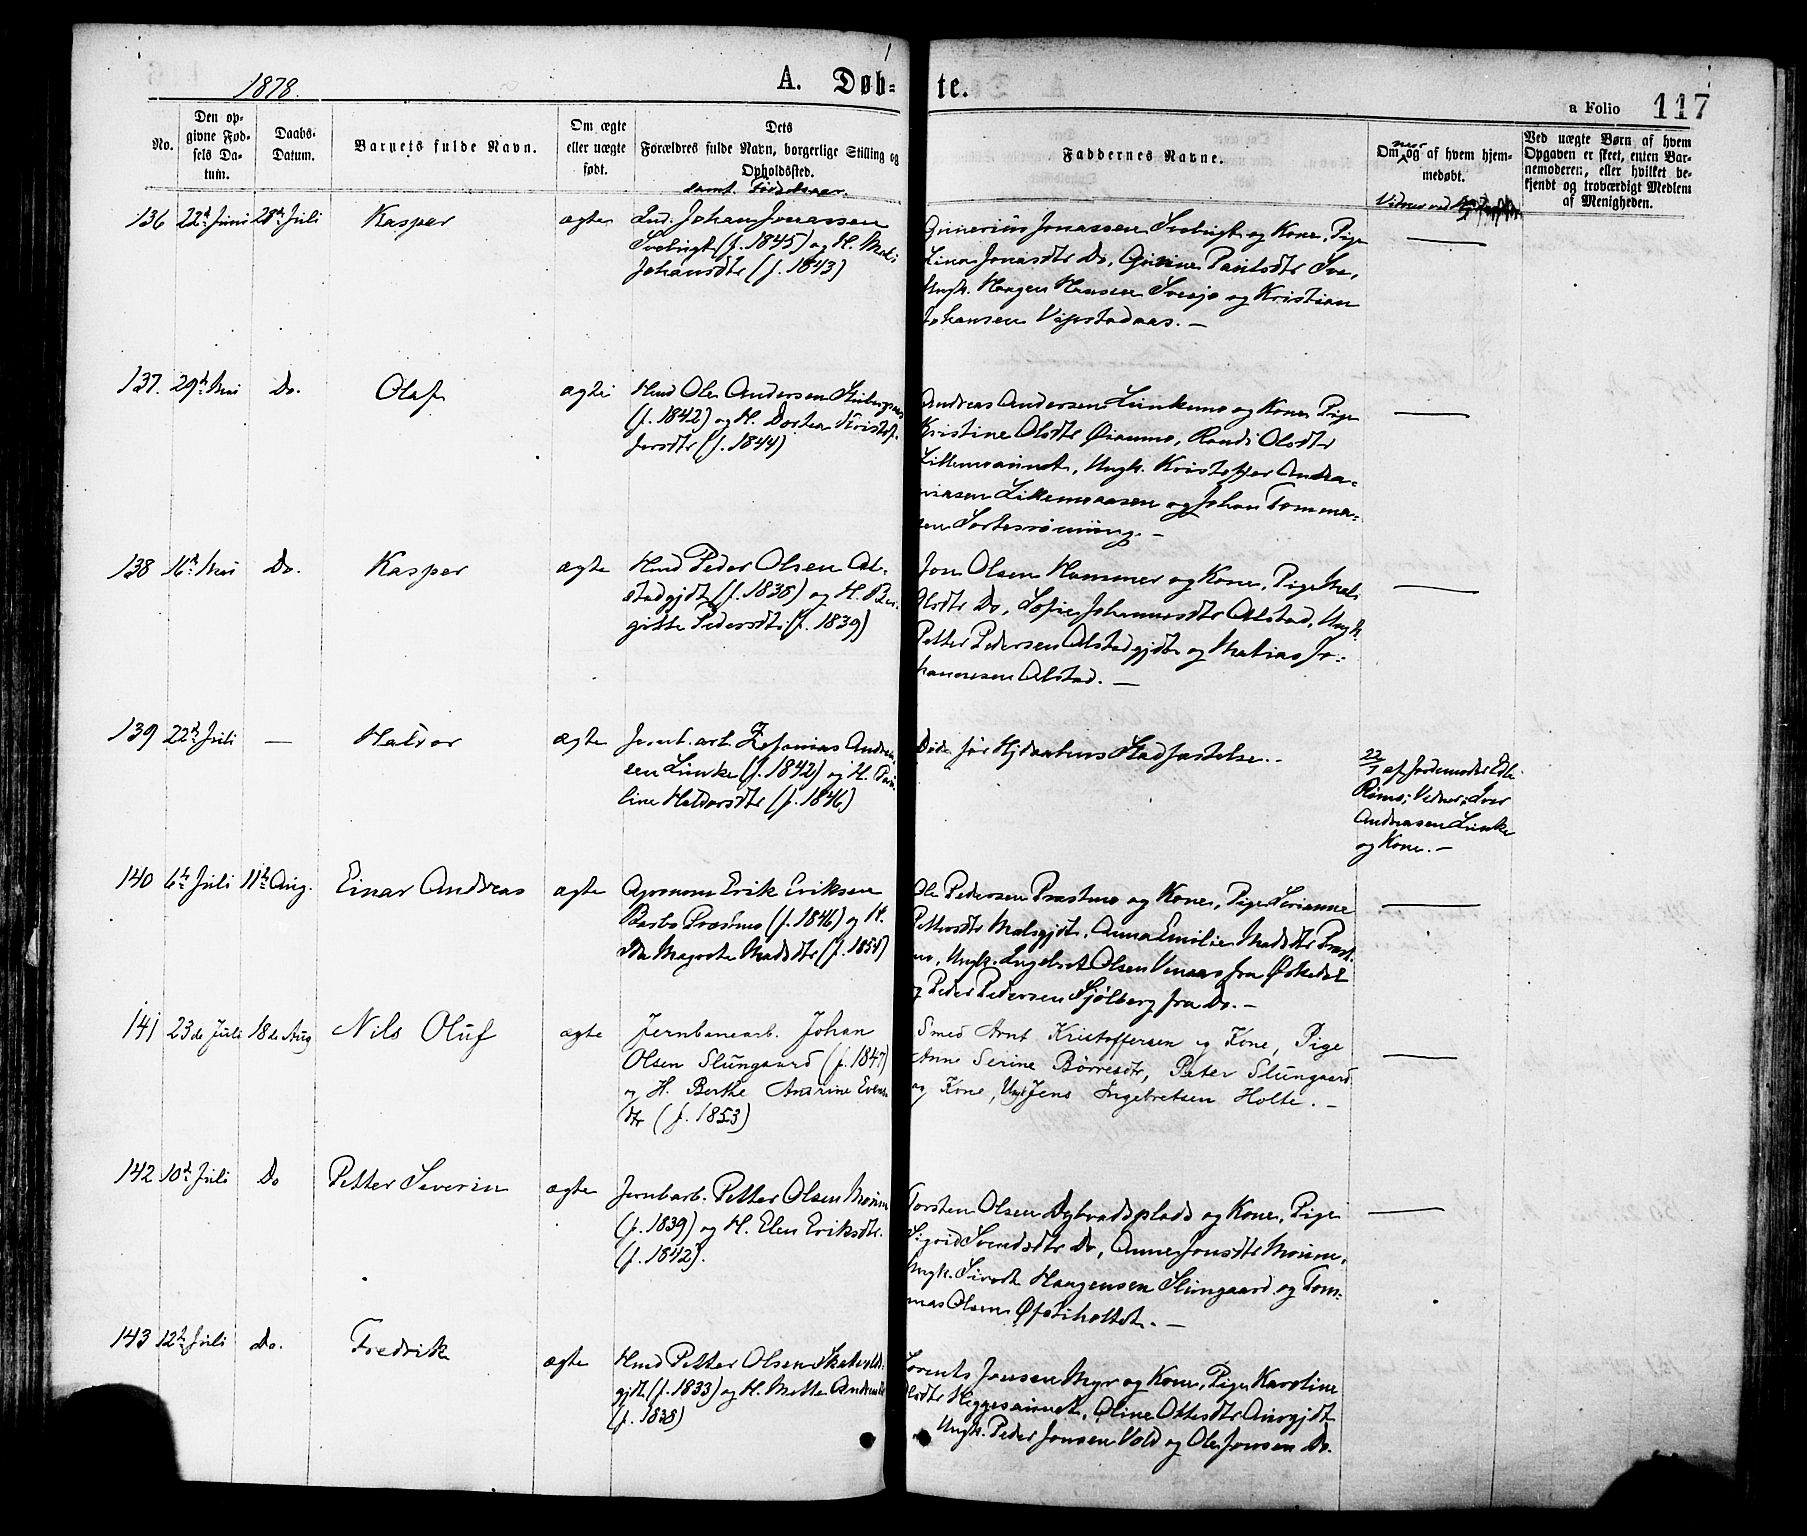 1878.
A. Døb-
te.
a Folio 117
No.
Den op-
givne Fød-
sels Da-
tum.
Daabs-
Datum.
Barnets fulde Navn.
Om ægte
eller uægte
født.
Dets
Forældres fulde Navn, borgerlige Stilling og
Opholdssted.
samt Fødselsaar.
Faddernes Navne.
Om og af hvem hjem-
naar
medøbt.
Vidner ved
Ved uægte Børn af hvem
Opgaven er skeet, enten Bar-
nemoderen, eller hvilket be-
kjendt og troværdigt Medlem
af Menigheden.
136 22de Juni 28de Juli Kasper ægte Ind. Johan Jonassen
Svebugt (f. 1845) og H. Mali
Johansdtr (f. 1843)
Gunerius Jonassen Svebugt og Kone, Pige
Lina Jonasdtr Do, Gurine Paulsdtr Sve,
Ungk. Haagen Hansen Svesjø og Kristian
Johansen Vipstadaas. —
137. 29de Mai Do. Olaf ægte Hmd Ole Andersen
(f. 1842) og H. Dortea Kristof-
fersdtr (f. 1844)
Andreas Andersen Lunkemo og Kone, Pige
Kristine Olsdtr Øiammo, Randi Olsdtr
Lillemoaunet, Ungk. Kristoffer Andrea-
niasen Lillemoaasen og Johan Tommes-
sen
138 16de Mai Do. Kasper ægte Hmd Peder Olsen Al-
stadgjdt (f. 1838) og H. Ber-
gitte Pedersdtr (f. 1839)
Jon Olsen Hammer og Kone, Pige Mali
Olsdtr Do, Sofie Johannesdtr Alstad, Ungk.
Petter Pedersen Alstadgjdt og Matias Jo-
hannesen Alstad. —
139 22de Juli — Haldor ægte Jernb. arb. Zefanias Andrea-
sen Lunke (f. 1842) og H. Pau-
line Haldorsdtr (f. 1846)
Døde før Hjdaabens Stadfæstelse. —
22/7 af Jordemoder Edle
Rømo; Vidner; Iver
Andreasen Lunke
og Kone. —
140 6te Juli 11te Aug. Einar Andreas ægte Agronom Erik Eriksen
Barbo Præstmo (f. 1846) og H.
Ida Magrete Madsdtr (f. 1854)
Ole Pedersen Præstmo og Kone, Pige Serianne
Pettersdtr Molsgjdt, Anna Emilie Madsdtr Præst-
mo, Ungk. Ingebret Olsen Venaas fra Øskedal
og Peder Pedersen Sjølberg fra Do. —
141 23de Juli 18de Aug Nils Oluf ægte Jernbanearb. Johan
Olsen Slungaard (f. 1847)
og H. Berthe Andrine Evens-
dtr (f. 1853)
Smed Arnt Kristoffersen og Kone, Pige
Anne Serine Børresdtr, Peter Slungaard
og Kone, Ungk Jens Ingebretsen Holte. —
142 10de Juli Do Petter Severin ægte Jernbarb. Petter Olsen Moium
(f. 1839) og H. Elen Eriksdtr.
(f. 1842).
Torsten Olsen Dybvadsplads og Kone, Pige
Sigrid Svendsdtr Do, Anne Jonsdtr Moium,
Ungk. Sivert Haagensen Slungaard og Tom-
mas Olsen Øfstiholtet. —
143 12te Juli Do. Fredrik ægte Hmd Petter Olsen Skatvold-
gjdt (f. 1833) og H. Mette Andreasdtr
(f. 1838)
Lorents Jonsen Myr og Kone, Pige Karoline
Olsdtr Heggesaunet, Oline Ottesdtr Auvgjdt
Ungk. Peder Jonsen Vold og Ole Jonsen Do.